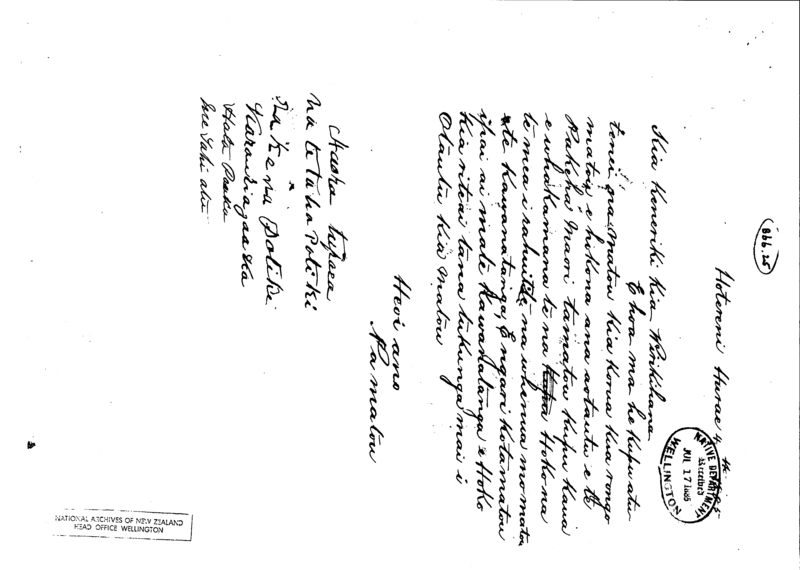 866.25
Hotereni Hurae 4
NATIVE DEPARTMENT
RECEIVED
JUL 17 1885
WELLINGTON
Kia Koneriki kia
E hoa ma he kupu atu
tenei na matou kia korua kua rongo
matou e hikona ana aotautu e te
Pakeha Maori tamatou kupu kaua
e whakamana te na Hokona
te mea i rahuitia na whenua mo matou
te Kawanatanga, E ngari kotamatou
ipai ai mate Kawanatanga e Hoko
kia riteai tana tukunga mai i
Otautu kia matou
Heoi ano
Na matou
tupaea
Na te taha Potiki
Potiki
Hata
me Tahi atu
NATIONAL ARCHIVES OF NEW ZEALAND
HEAD OFFICE WELLINGTON